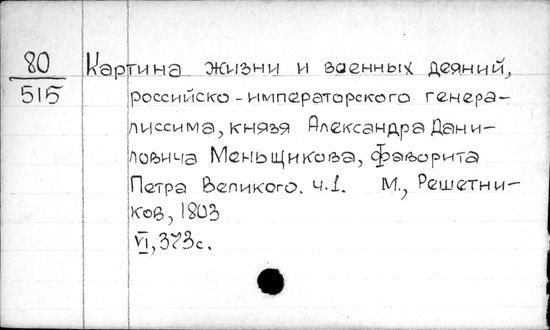 80
515
Картина жизни и военных деяний,
российско-императорского генера-
лиссима, князя Александра Дани-
ловича Меньщикова, фаворита
Петра Великого. ч.1. М., Решетни-
ков, 1803
VI, 373с.